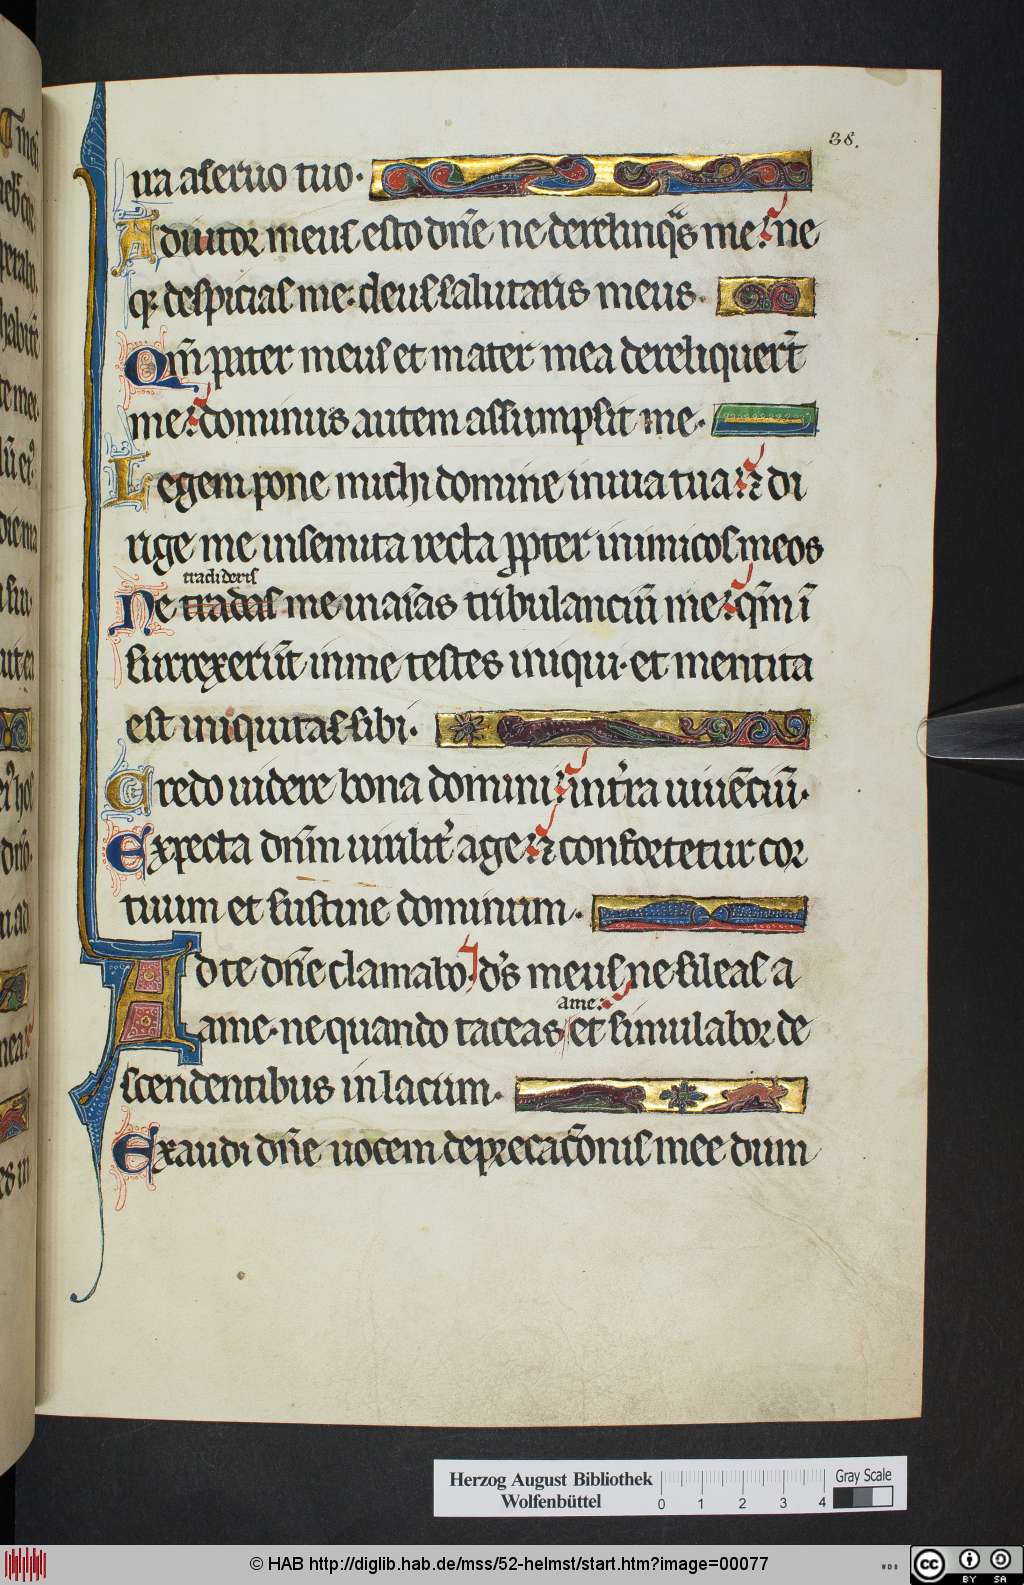 38.
ira a seruo tuo.
Adiutor meus esto dñe ne derelinqᷓs me: ne
qꝫ despicias me. deus salutaris meus.
Qm̄ pater meus et mater mea dereliquert̄
me: dominus autem assumpsit me.
Legem pone michi domine in uia tua ⁊ di
rige me in semita recta ꝓpter inimicos meos
tradideris
Ne tradas me in aīas tribulanciū me: qm̄ ī
surrexerūt in me testes iniqui. et mentita
est iniquitas sibi.
Credo uidere bona domini: in tr̄a uiuēciū.
Expecta dñm uirilitʼ age ⁊ confortetur cor
tuum et sustine dominum.
Ad te dñe clamabo. ds̄ meus ne sileas a
ame:
ame. ne quando taceas // et simulabor de
scendentibus in lacum.
Exaudi dñe uocem deprecac̄onis mee dum
Herzog August Bibliothek
Wolfenbüttel
0 1 2 3 4
Gray Scale
© HAB http://diglib.hab.de/mss/52-helmst/start.htm?image=00077
WDB
cc BY SA